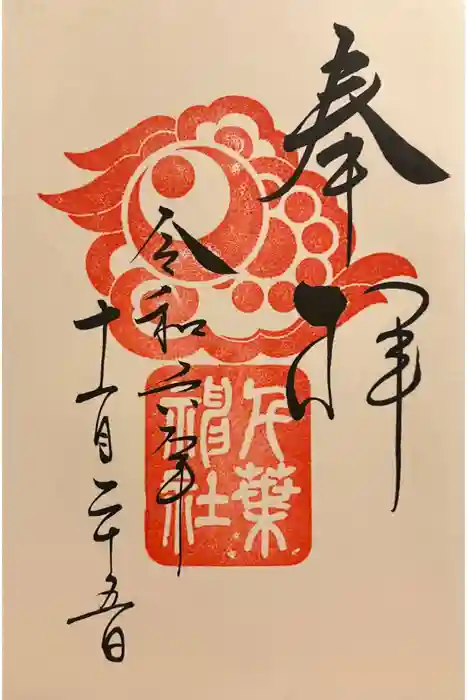 奉拝
千葉
神社
令和六年
十一月二十五日